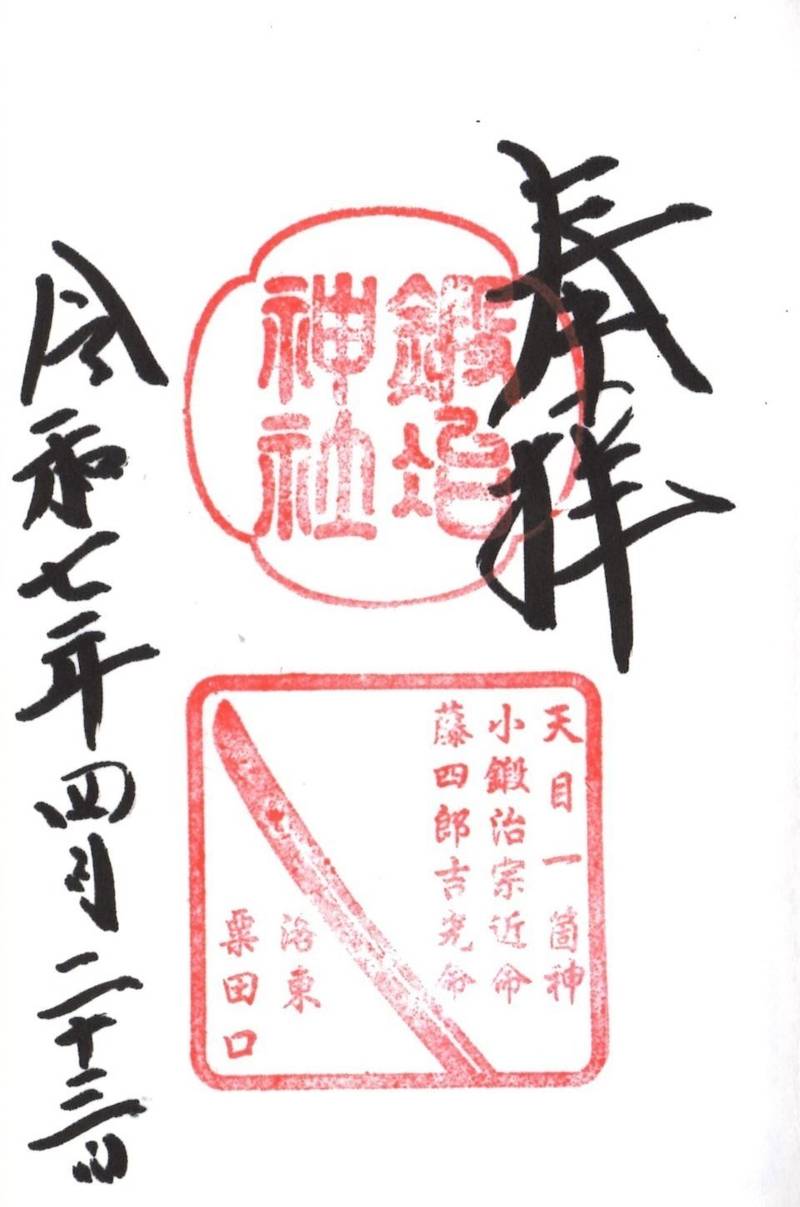 奉拝
鍛冶
神社
天目一箇神
小鍛治宗近命
藤四郎吉光命
洛東
粟田口
令和七年四月二十三日